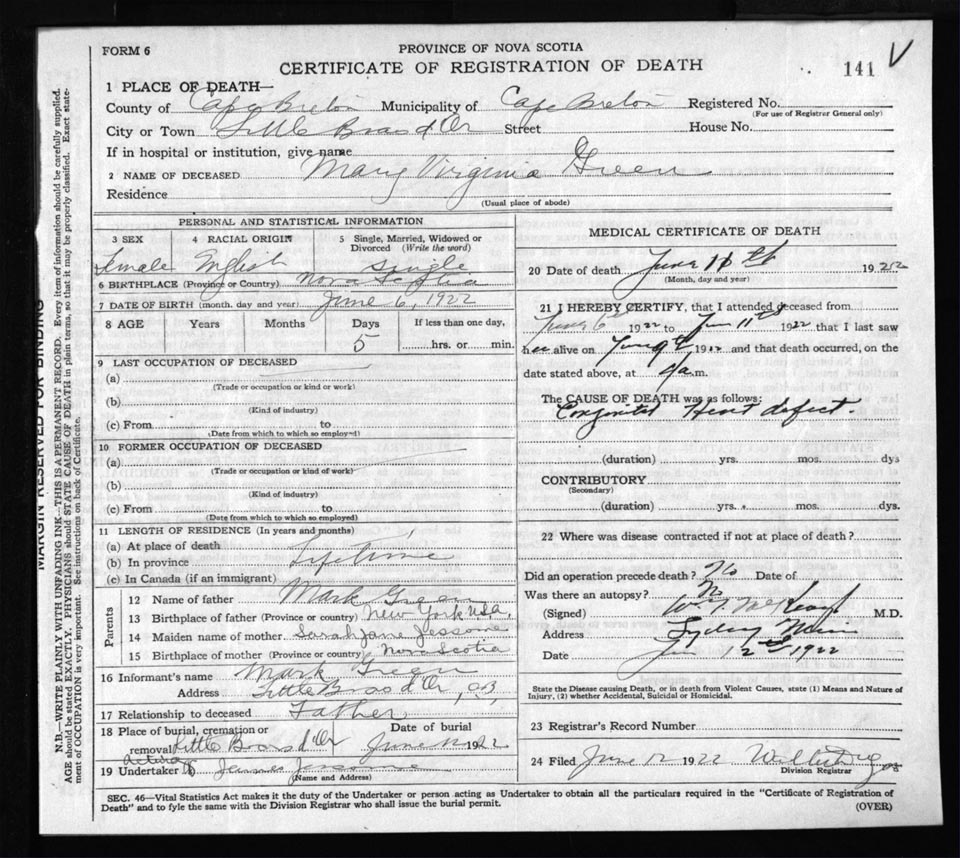 FORM 6
PROVINCE OF NOVA SCOTIA
CERTIFICATE OF REGISTRATION OF DEATH
141 V
1 PLACE OF DEATH—
County of Cape Breton Municipality of Cape Breton Registered No.
(For use of Registrar General only)
City or Town Little Bras d'Or Street House No.
If in hospital or institution, give name
2 NAME OF DECEASED Mary Virginia Green
Residence
(Usual place of abode)
PERSONAL AND STATISTICAL INFORMATION
3 SEX 4 RACIAL ORIGIN 5 Single, Married, Widowed or Divorced (Write the word)
Female English Single
6 BIRTHPLACE (Province or Country) Nova Scotia
7 DATE OF BIRTH (month, day and year) June 6, 1922
8 AGE Years Months Days If less than one day,
5 hrs. or min.
9 LAST OCCUPATION OF DECEASED
(a)
(Trade or occupation or kind or work)
(b)
(Kind of industry)
(c) From to
(Date from which to which so employed)
10 FORMER OCCUPATION OF DECEASED
(a)
(Trade or occupation or kind of work)
(b)
(Kind of industry)
(c) From to
(Date from which to which so employed)
11 LENGTH OF RESIDENCE (In years and months)
(a) At place of death
(b) In province Lifetime
(c) In Canada (if an immigrant)
Parents
12 Name of father Mark Green
13 Birthplace of father (Province or country) New York U.S.A.
14 Maiden name of mother Sarah Jane Jessome
15 Birthplace of mother (Province or country) Nova Scotia
16 Informant's name Mark Green
Address Little Bras d'Or, C.B.
17 Relationship to deceased Father
18 Place of burial, cremation or removal Little Bras d'Or Date of burial June 12 1922
19 Undertaker James Jessome
(Name and Address)
MEDICAL CERTIFICATE OF DEATH
20 Date of death June 11th 1922
(Month, day and year)
21 I HEREBY CERTIFY, that I attended deceased from
June 6th 1922 to June 11th 1922 that I last saw
her alive on June 9th, 1922 and that death occurred, on the
date stated above, at a.m.
The CAUSE OF DEATH was as follows:
Congenital Heart defect.
(duration) yrs. mos. dys
CONTRIBUTORY
(Secondary)
(duration) yrs. mos. dys.
22 Where was disease contracted if not at place of death?
Did an operation precede death? No Date of
Was there an autopsy? No
(Signed) M.D.
Address Sydney Mines
Date Jun 12th 1922
State the Disease causing Death, or in death from Violent Causes, state (1) Means and Nature of Injury, (2) whether Accidental, Suicidal or Homicidal.
23 Registrar's Record Number
24 Filed June 12 1922
Division Registrar
SEC. 46—Vital Statistics Act makes it the duty of the Undertaker or person acting as Undertaker to obtain all the particulars required in the "Certificate of Registration of
Death" and to fyle the same with the Division Registrar who shall issue the burial permit. (OVER)
MARGIN RESERVED FOR BINDING
N.B.—WRITE PLAINLY WITH UNFADING INK—THIS IS A PERMANENT RECORD. Every item of information should be carefully supplied.
AGE should be stated EXACTLY. PHYSICIANS should STATE CAUSE OF DEATH in plain terms, so that it may be properly classified. Exact state-
ment of OCCUPATION is very important. See instructions on back of Certificate.